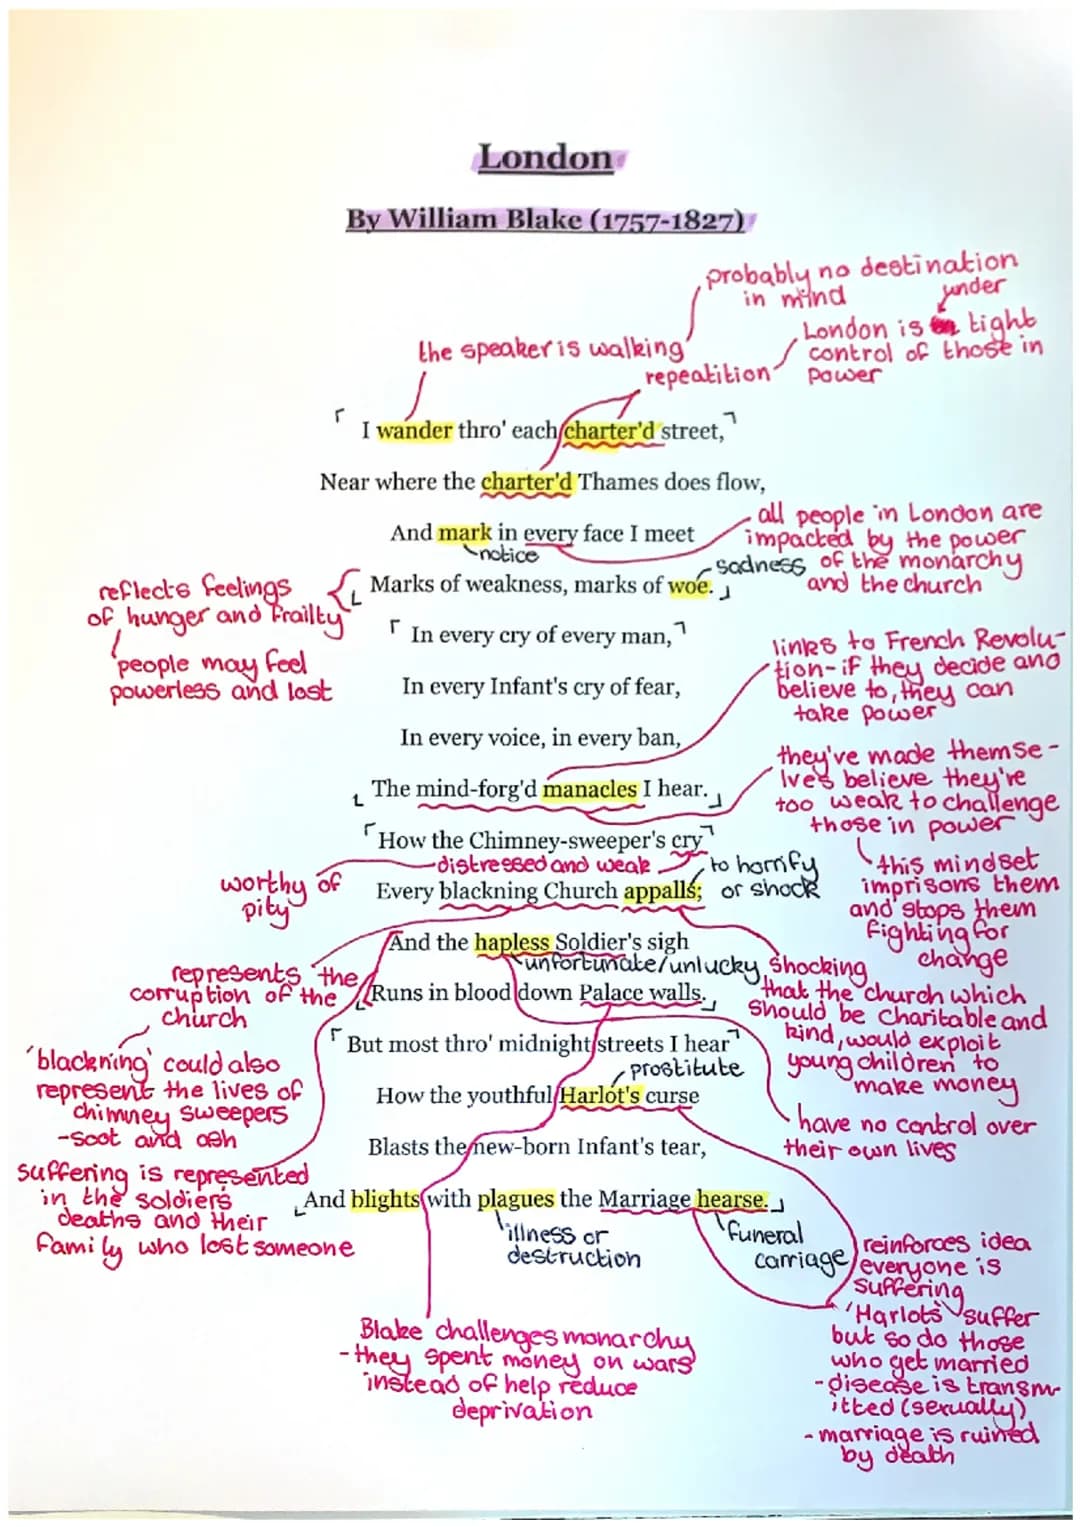 London
By William Blake (1757-1827)
probably no destination
in mind
under
London is tight
control of those in
power
the speaker is walking
repeatition
I wander thro' each charter'd street,
Near where the charter'd Thames does flow,
And mark in every face I meet
notice
all people in London are
impacted by the power
of the monarchy
and the church
sadness
Marks of weakness, marks of woe.
reflects feelings
of hunger and frailty
people may feel
powerless and lost
In every cry of every man,
In every Infant's cry of fear,
In every voice, in every ban,
The mind-forg'd manacles I hear.
links to French Revolu-
tion- if they decide and
believe to, they can
take power
they've made themse-
lves believe they're
too weak to challenge
those in power
this mindset
imprisons them
and stops them
fighting for
change
How the Chimney-sweeper's cry
distressed and weak
worthy of
pity
to horrify
or shock
Every blackning Church appalls;
And the hapless Soldier's sigh
unfortunate/unlucky
Runs in blood down Palace walls.
represents the
corruption of the
church
'blackning' could also
represent the lives of
chimney sweepers
-soot and ash
shocking
that the church which
should be charitable and
kind, would exploit
young children to
make money
have no control over
their own lives
suffering is represented
in the soldiers
deaths and their
family who lost someone
But most thro' midnight streets I hear
prostitute
How the youthful Harlot's curse
Blasts the new-born Infant's tear,
And blights with plagues the Marriage hearse.
illness or
destruction
funeral
carriage
Blake challenges monarchy
-they spent money on wars
instead of help reduce
deprivation
reinforces idea
everyone is
suffering
'Harlots' suffer
but so do those
who get married
-disease is transm-
itted (sexually)
-marriage is ruined
by death